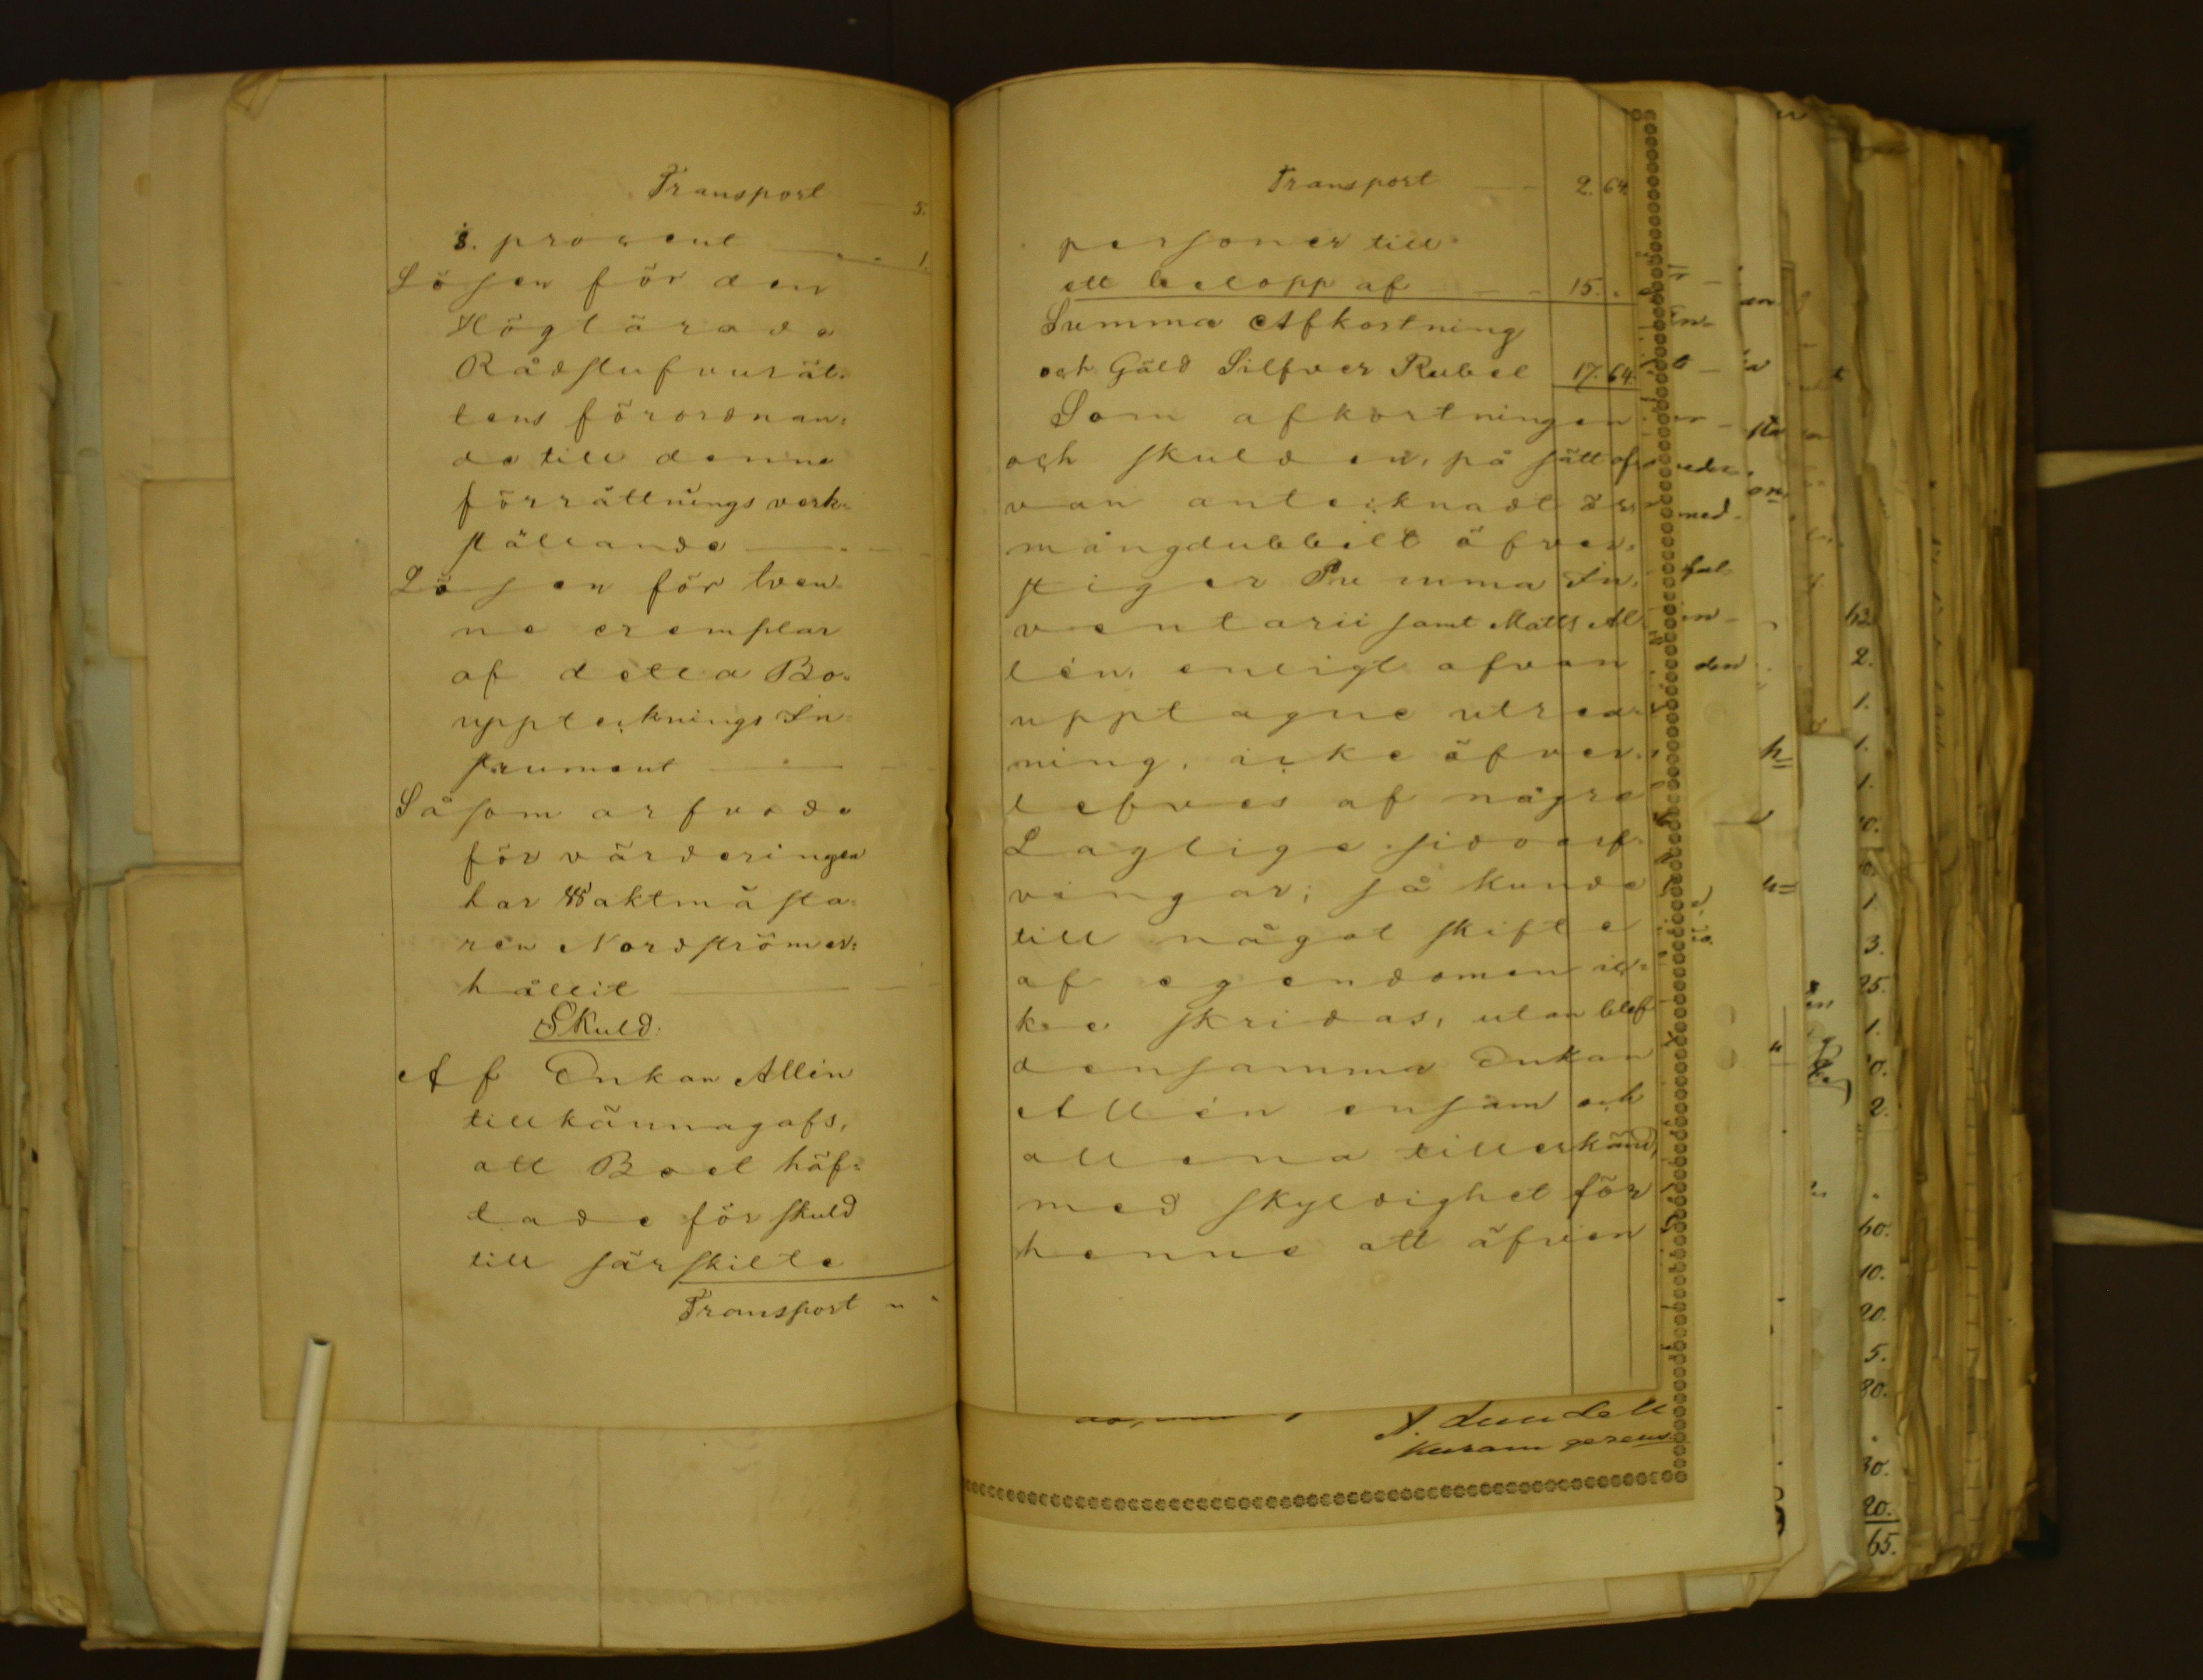 Transport 5.
s. procent 1.
Lösen för den
Höglärade
Rådstufvurät=
tens förordnan=
de till denne
förrättnings verk=
ställande
Lösen för tven=
ne exemplar
af detta Bo=
uppteckning's In=
strument
Såsom arfvode
för värderingen
har Waktmästa=
ren Nordström er=
hållit
Skuld.
Af Enkan Allén
tillkännagafs,
att Boet häf=
tade för skuld
till särskilte
Transport
Transport 2. 64.
personer till
ett belopp af 15.
Summa Afkortning
och Gäld Silfver Rubel 17. 64.
Som afkortningen
och skulden, på sätt of=
van antecknadt är
mångdubbelt öfver=
stiger Summa In=
ventarii samt Matts Al=
lén, enligt ofvan
upptagne utred=
ning, icke öfver=
lefves af några
Laglige sidoarf=
vingar; så kunde
till något skifte
af egendomen ic=
ke skridas, utan blef
densamma Enkan
Allén ensam och
allena tillerkänd,
med skyldighet för
henne att äfven
A. Lundell
Kuram gerens.
med.
den
62.
2.
1.
1.
1.
0.
1
3.
25.
1.
0.
2.
60.
10.
20.
5.
80.
30.
20.
65.